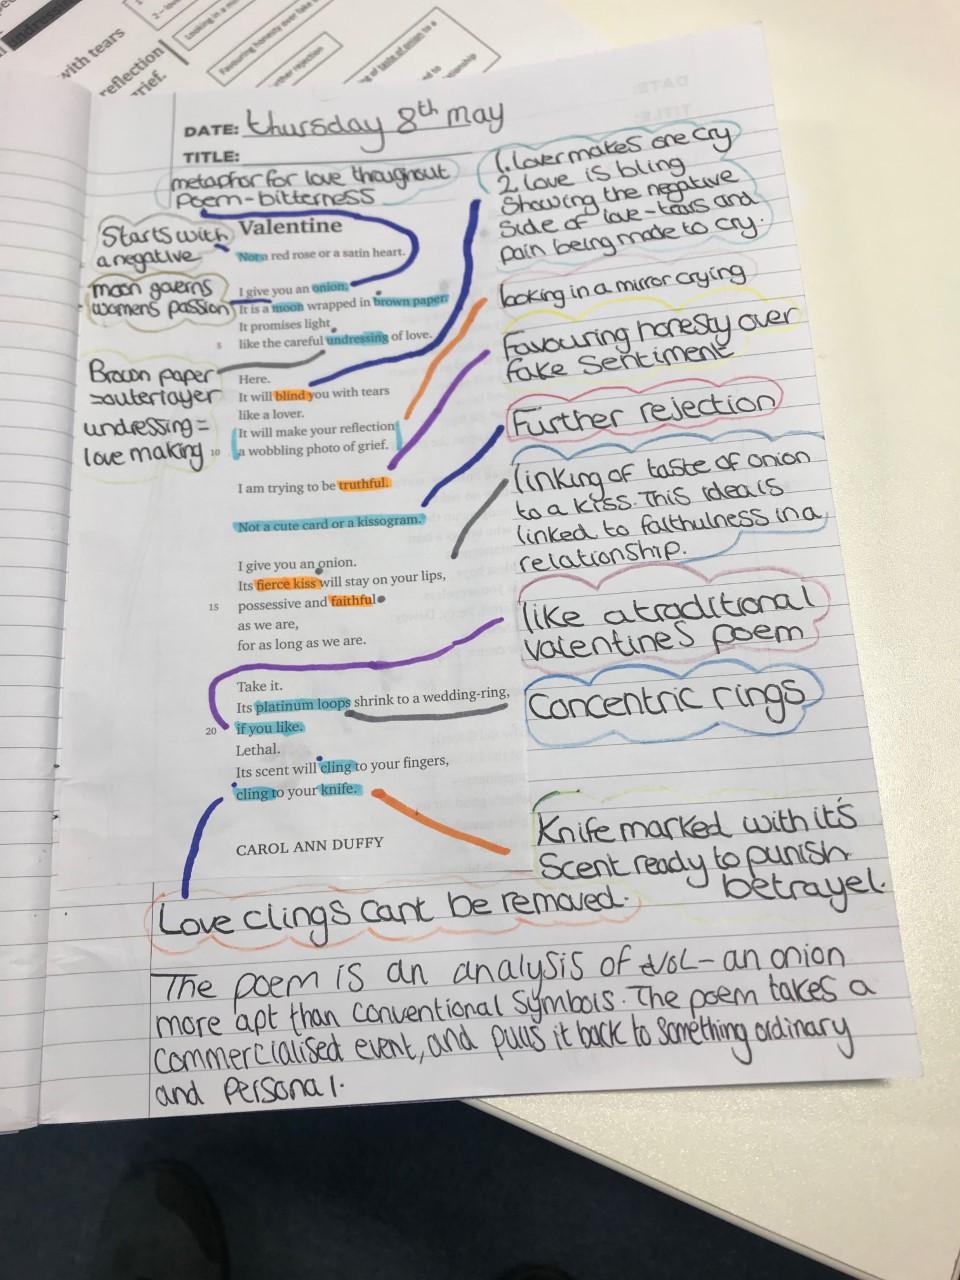 with tears
reflection
rief.
2 – lov
Looking in a m
Favouring honesty over fake
rther rejection
ng of taste of onion to a
DATE: thursday 8th may
TITLE:
metaphor for love throughout
Poem - bitterness
Starts with
a negative
moon governs
womens passion
Brown paper
=outer layer
undressing =
love making
Valentine
Not a red rose or a satin heart.
I give you an onion.
It is a moon wrapped in brown paper.
It promises light
5 like the careful undressing of love.
Here.
It will blind you with tears
like a lover.
It will make your reflection
10 a wobbling photo of grief.
I am trying to be truthful.
Not a cute card or a kissogram.
I give you an onion.
Its fierce kiss will stay on your lips,
15 possessive and faithful
as we are,
for as long as we are.
Take it.
Its platinum loops shrink to a wedding-ring,
20 if you like.
Lethal.
Its scent will cling to your fingers,
cling to your knife.
CAROL ANN DUFFY
1. lover makes one cry
2. love is bling
Showing the negative
side of love - tears and
pain being made to cry.
looking in a mirror crying
Favouring honesty over
fake sentiment
Further rejection
linking of taste of onion
to a kiss. This idea is
linked to faithulness in a
relationship.
like a traditional
valentines poem
Concentric rings
Knife marked with it's
Scent ready to punish
betrayel.
Love clings cant be removed.
The poem is an analysis of - an onion
more apt than conventional symbols. The poem takes a
commercialised event, and pulls it back to something ordinary
and personal.